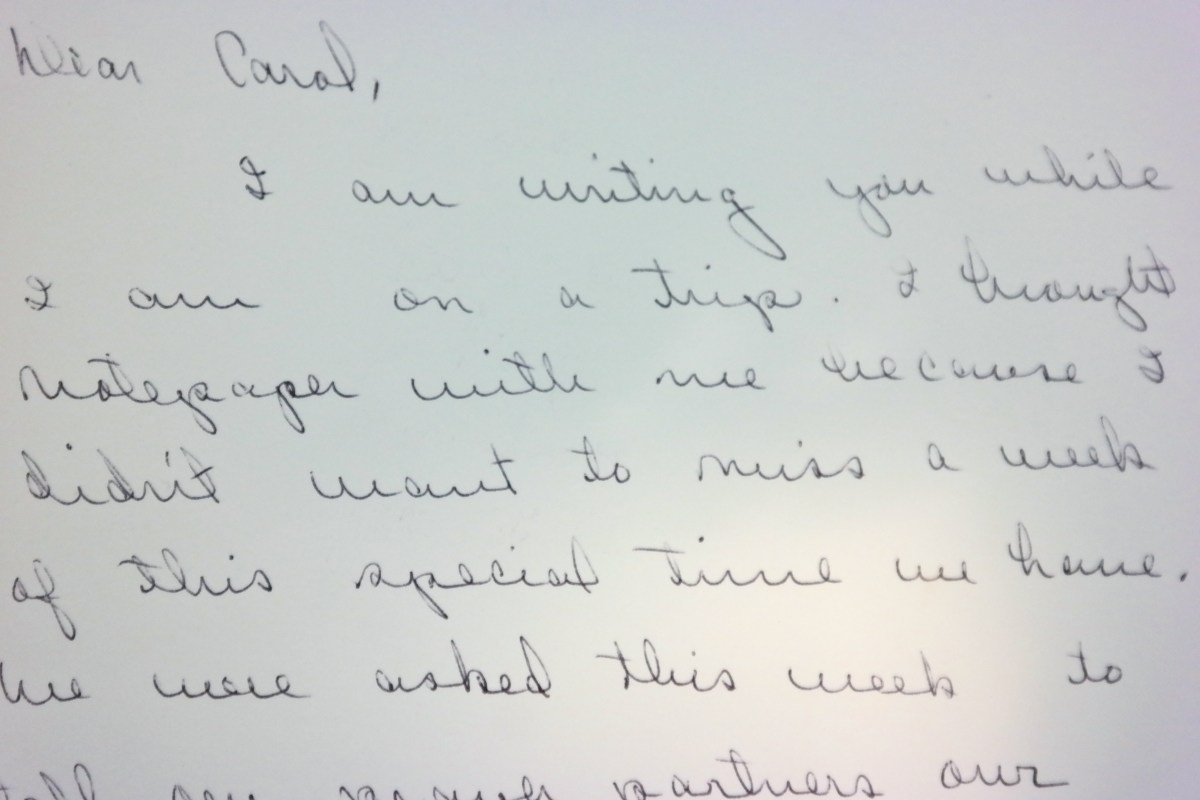 Dear Carol,
I am writing you while
I am on a trip. I brought
notepaper with me because I
didn't want to miss a week
of this special time we have.
We were asked this week to
tell our prayer partners our